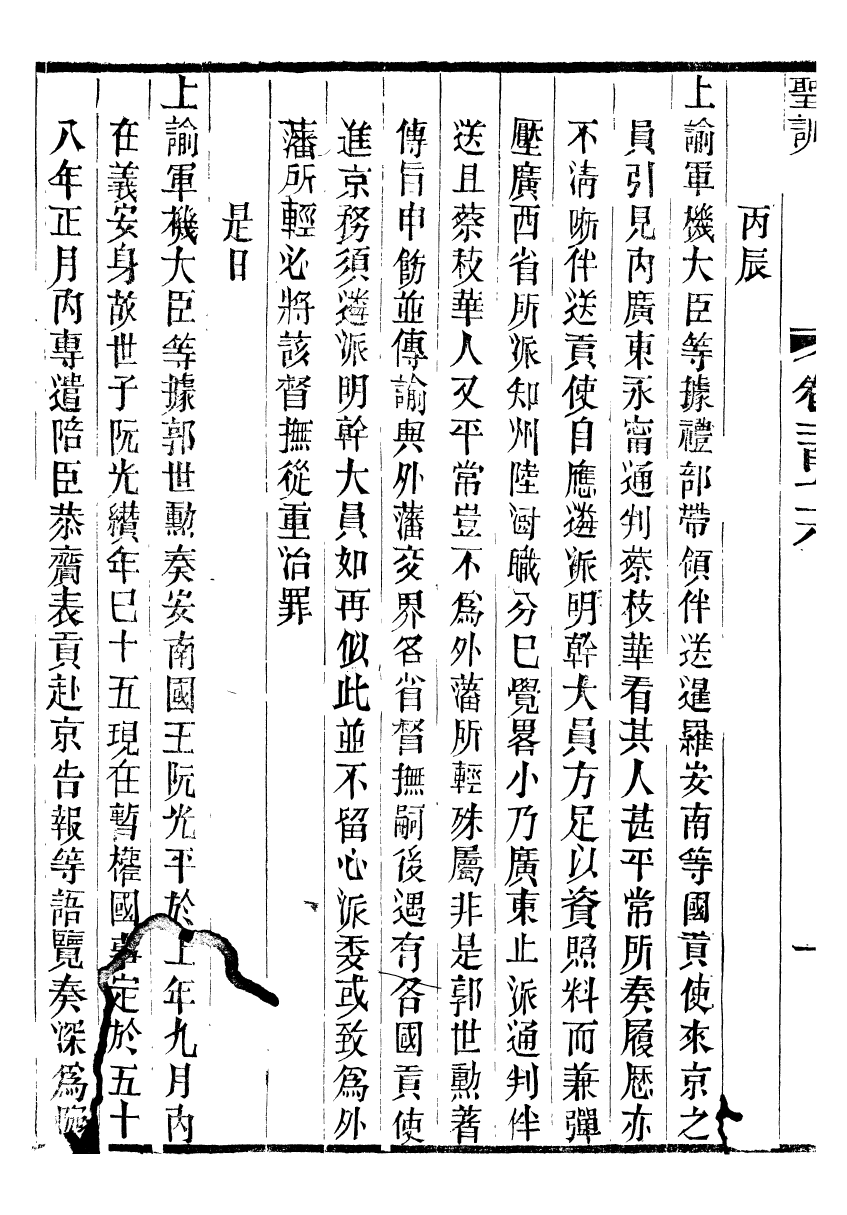 聖訓 卷三百六 一
丙辰
上諭軍機大臣等據禮部帶領伴送暹羅安南等國貢使來京之
員引見內廣東永甯通判蔡枝華看其人甚平常所奏履歷亦
不淸晰伴送貢使自應遴派明幹大員方足以資照料而兼彈
壓廣西省所派知州陸澍職分已覺畧小乃廣東止派通判伴
送且蔡枝華人又平常豈不爲外藩所輕殊屬非是郭世勳著
傳旨申飭並傳諭與外藩交界各省督撫嗣後遇有各國貢使
進京務須遴派明幹大員如再似此並不留心派委或致爲外
藩所輕必將該督撫從重治罪
是日
上諭軍機大臣等據郭世勳奏安南國王阮光平於上年九月內
在義安身故世子阮光纘年已十五現在暫權國事定於五十
八年正月內專遣陪臣恭齎表貢赴京告報等語覽奏深爲